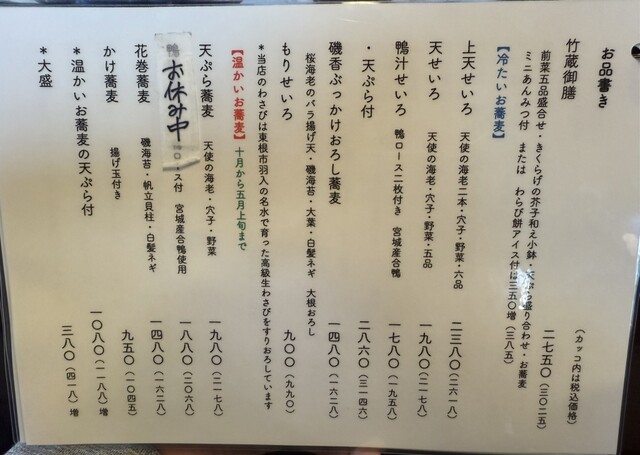 お品書き
(カッコ内は税込価格)
竹蔵御膳 二七五〇(三〇二五)
前菜五品盛合せ・きくらげの芥子和え小鉢・天ぷら盛り合わせ・お蕎麦
ミニあんみつ付 または わらび餅アイス付は三五〇増(三八五)
【冷たいお蕎麦】
上天せいろ 天使の海老二本・穴子・野菜・六品 二三八〇(二六一八)
天せいろ 天使の海老・穴子・野菜・五品 一九八〇(二一七八)
鴨汁せいろ 鴨ロース二枚付き 宮城産合鴨 一七八〇(一九五八)
・天ぷら付 二八六〇(三一四六)
磯香ぶっかけおろし蕎麦 一四八〇(一六二八)
桜海老のバラ揚げ天・磯海苔・大葉・白髪ネギ 大根おろし
もりせいろ 九〇〇(九九〇)
*当店のわさびは東根市羽入の名水で育った高級生わさびをすりおろしています
【温かいお蕎麦】 十月から五月上旬まで
天ぷら蕎麦 天使の海老・穴子・野菜 一九八〇(二一七八)
鴨 お休み中 ロース付 宮城産合鴨使用 一八八〇(二〇六八)
花巻蕎麦 磯海苔・帆立貝柱・白髪ネギ 一四八〇(一六二八)
かけ蕎麦 揚げ玉付き 九五〇(一〇四五)
*温かいお蕎麦の天ぷら付 一〇八〇(一一八八)増
*大盛 三八〇(四一八)増